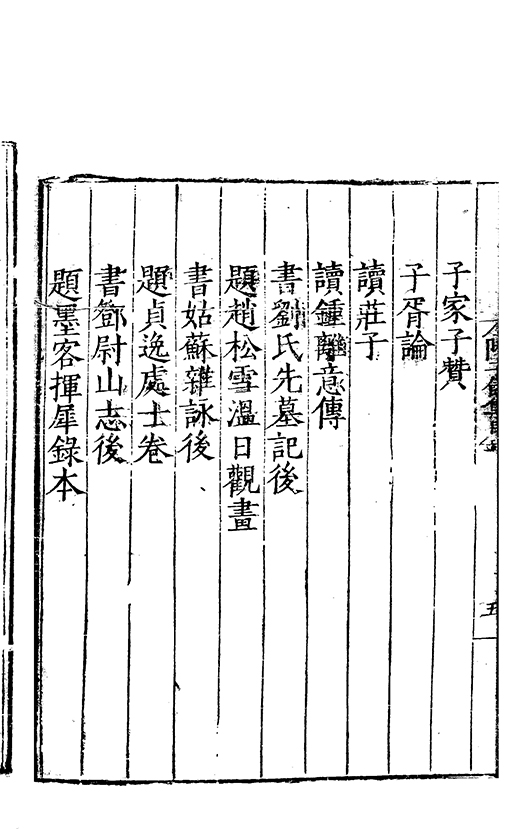 子家子贊
子胥論
讀莊子
讀鍾離意傳
書劉氏先墓記後
題趙松雪溫日觀畫
書姑蘇雜詠後
題貞逸處士卷
書鄧尉山志後
題墨客揮犀錄本
五